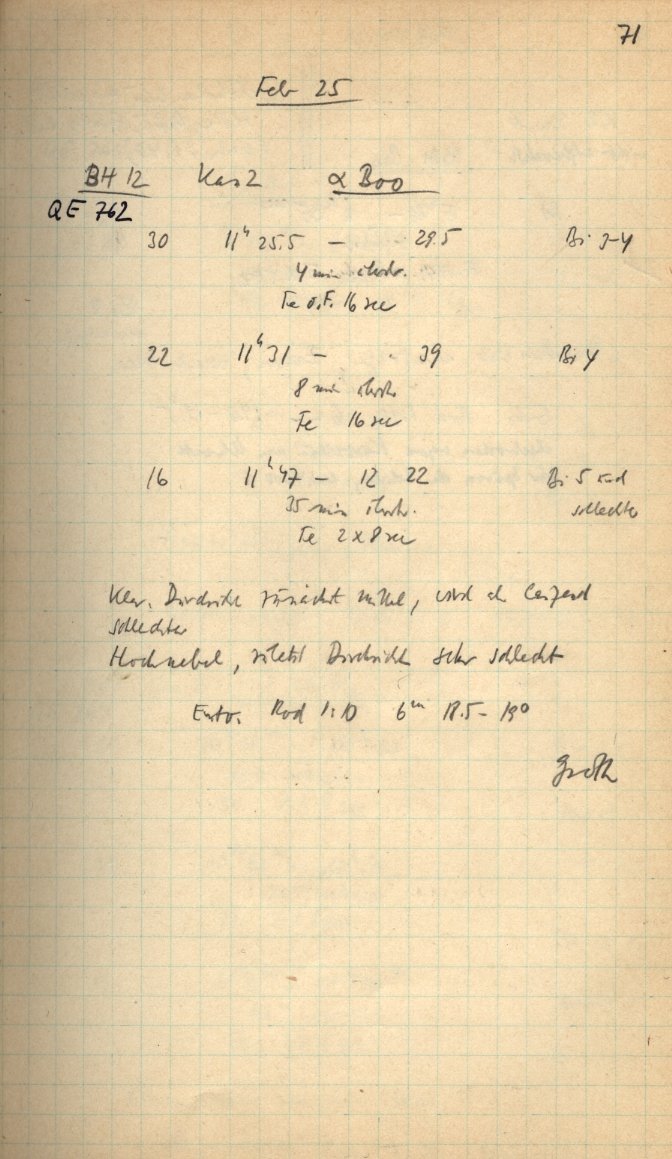 71
Feb 25
BH 12 Kas 2 α Boo
QE 762
30 11h 25.5 - 29.5 Bi 3-4
4 min
Fe o.F. 16 sec
22 11h 31 - 39 Bi 4
8 min
Fe 16 sec
16 11h 47 - 12 22 Bi 5 und
35 min schlechter
Fe 2 x 8 sec
Klar. Durchsicht zunächst mittel, wird laufend
schlechter
Hochnebel, zuletzt Durchsicht sehr schlecht
Entw. Rod 1:10 6m 18.5 - 19°
Groth